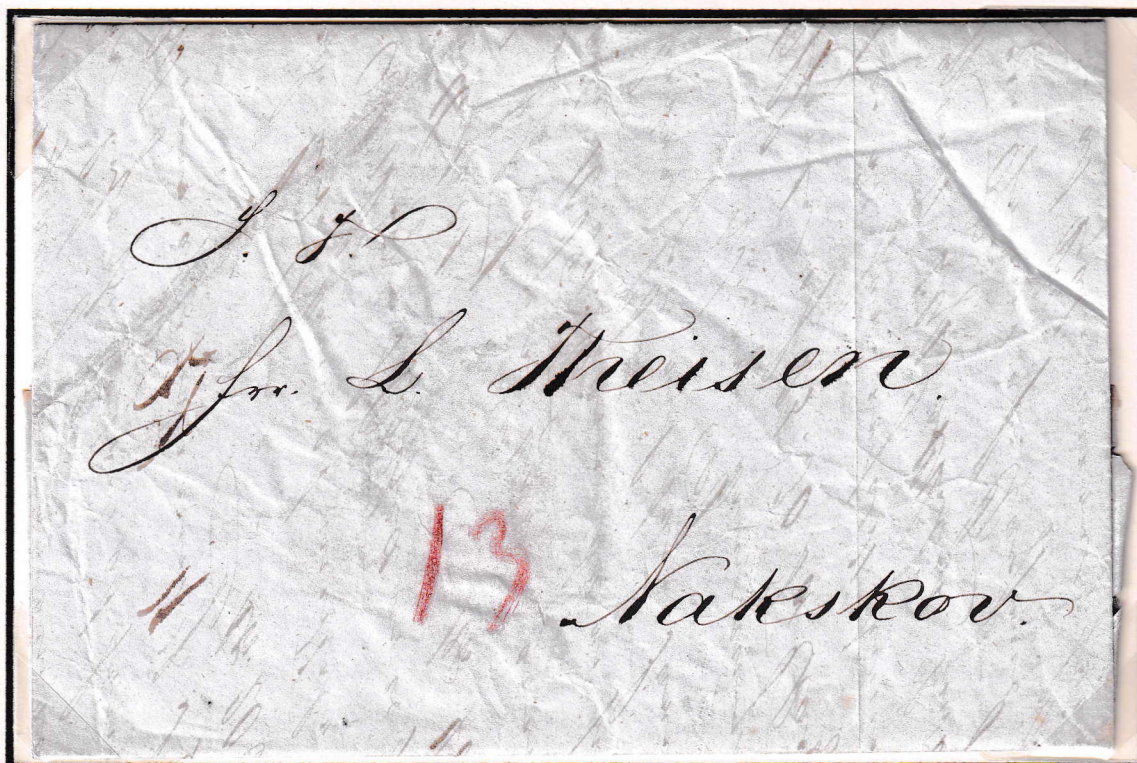 S. T.
Hrr. L. Theisen.
13
Nakskov.